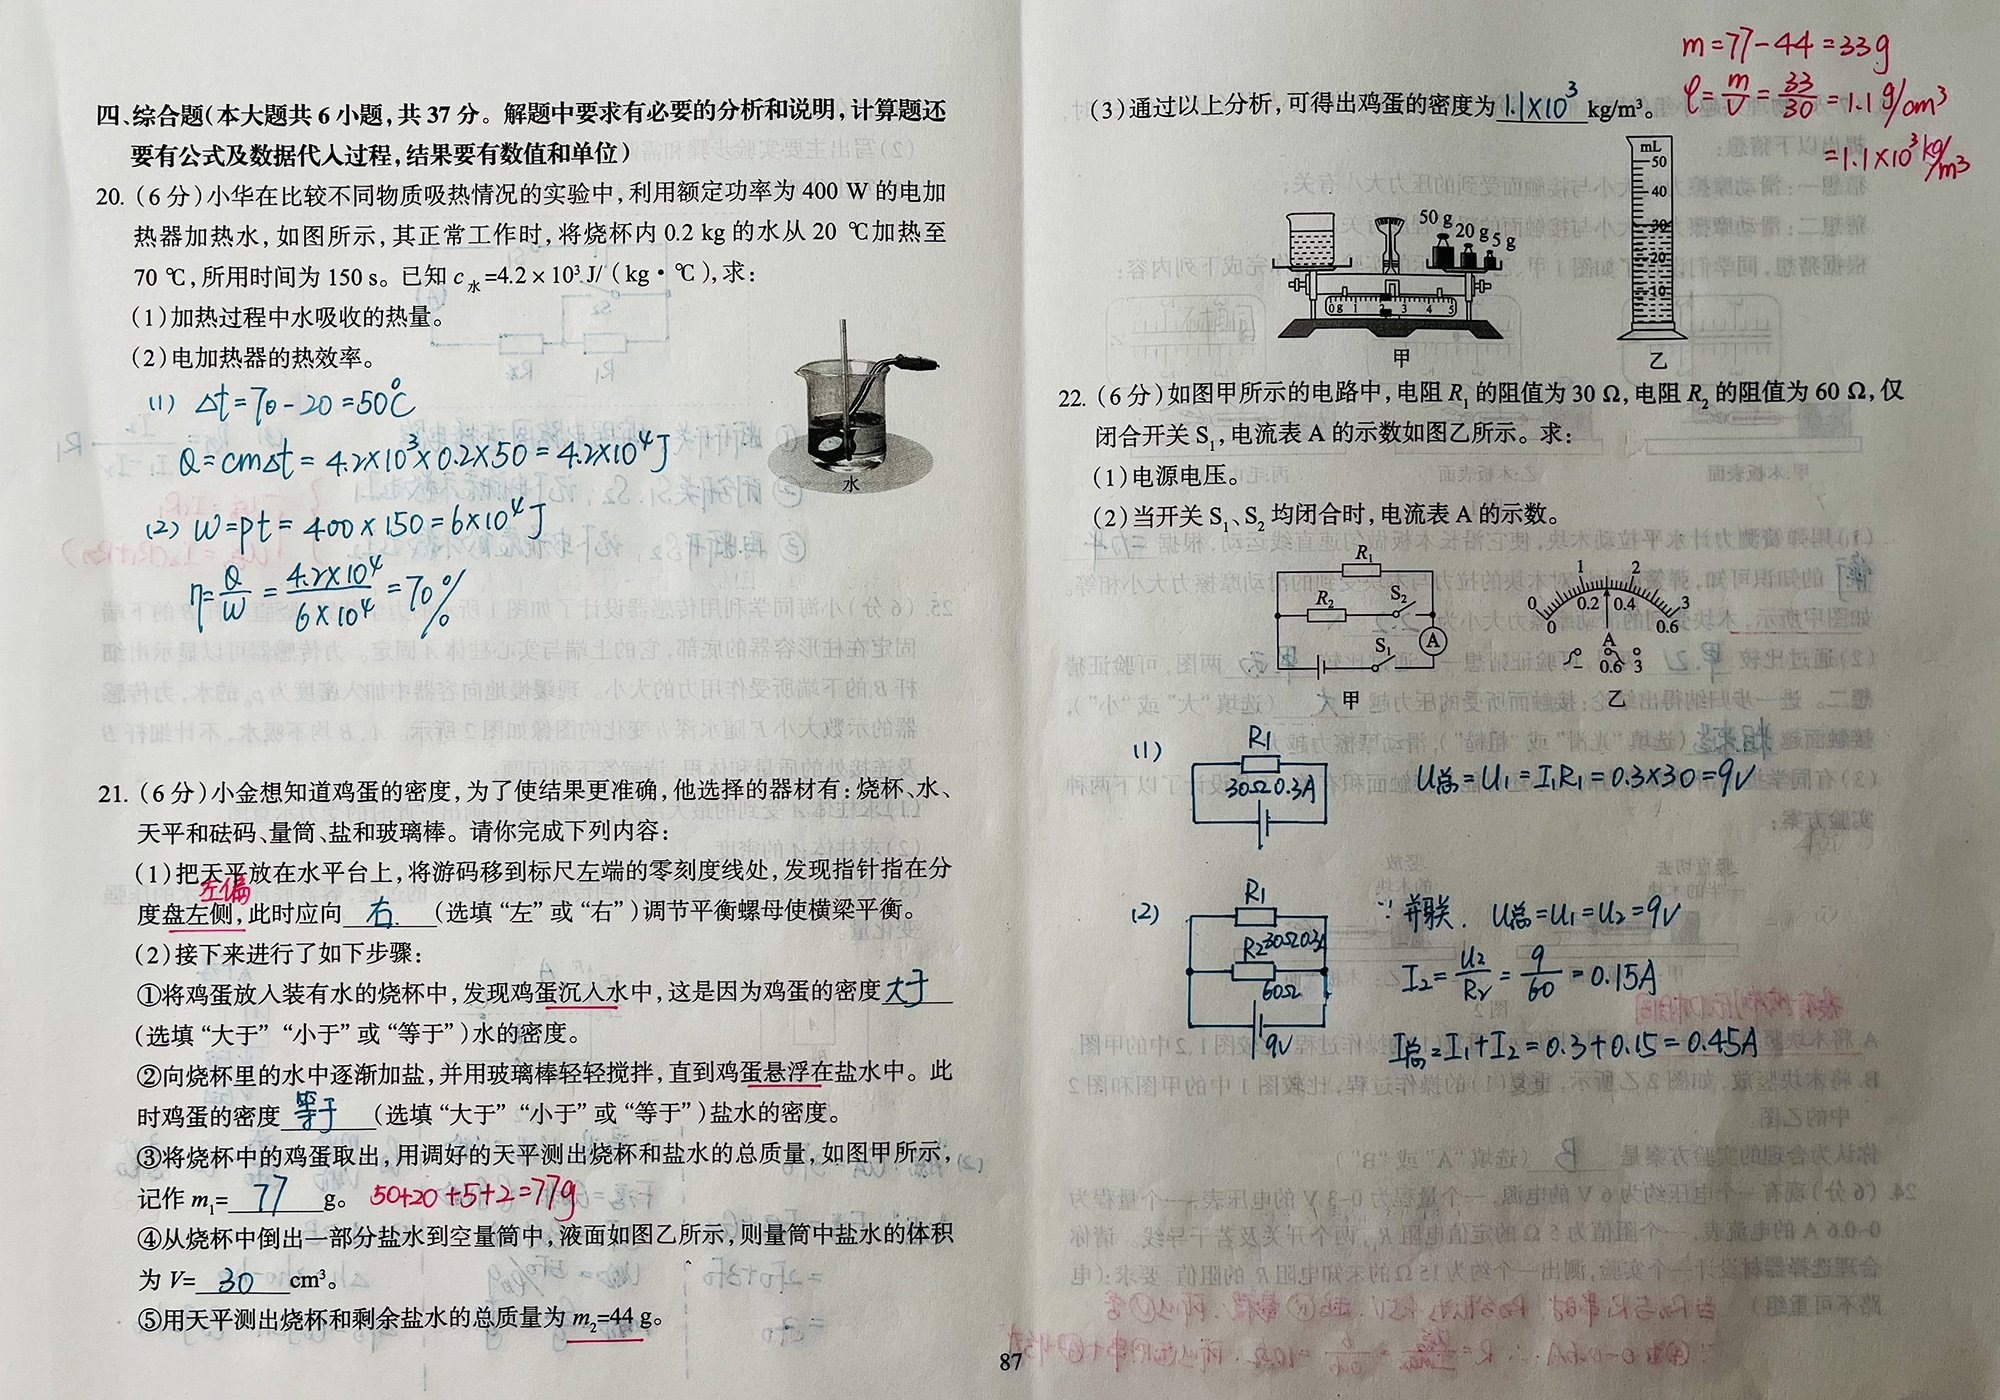 四、综合题(本大题共 6 小题,共 37 分。解题中要求有必要的分析和说明,计算题还
要有公式及数据代入过程,结果要有数值和单位)
20. (6 分)小华在比较不同物质吸热情况的实验中,利用额定功率为 400 W 的电加
热器加热水,如图所示,其正常工作时,将烧杯内 0.2 kg 的水从 20 ℃加热至
70 ℃,所用时间为 150 s。已知 c水=4.2×10³ J/(kg·℃),求:
(1)加热过程中水吸收的热量。
(2)电加热器的热效率。
水
(1) Δt=70-20=50℃
Q=cmΔt=4.2×10³×0.2×50=4.2×10⁴J
(2) W=Pt=400×150=6×10⁴J
η=Q/W=4.2×10⁴/6×10⁴=70%
21. (6 分)小金想知道鸡蛋的密度,为了使结果更准确,他选择的器材有:烧杯、水、
天平和砝码、量筒、盐和玻璃棒。请你完成下列内容:
(1)把天平放在水平台上,将游码移到标尺左端的零刻度线处,发现指针指在分
左偏
度盘左侧,此时应向 右 (选填“左”或“右”)调节平衡螺母使横梁平衡。
(2)接下来进行了如下步骤:
①将鸡蛋放入装有水的烧杯中,发现鸡蛋沉入水中,这是因为鸡蛋的密度 大于
(选填“大于”“小于”或“等于”)水的密度。
②向烧杯里的水中逐渐加盐,并用玻璃棒轻轻搅拌,直到鸡蛋悬浮在盐水中。此
时鸡蛋的密度 等于 (选填“大于”“小于”或“等于”)盐水的密度。
③将烧杯中的鸡蛋取出,用调好的天平测出烧杯和盐水的总质量,如图甲所示,
记作 m₁= 77 g。 50+20+5+2=77g
④从烧杯中倒出一部分盐水到空量筒中,液面如图乙所示,则量筒中盐水的体积
为 V= 30 cm³。
⑤用天平测出烧杯和剩余盐水的总质量为 m₂=44 g。
87
m=77-44=33g
(3)通过以上分析,可得出鸡蛋的密度为 1.1×10³ kg/m³。
ρ=m/V=33/30=1.1g/cm³
=1.1×10³kg/m³
50 g 20 g 5 g
0g 1 2 3 4 5
甲
mL
50
40
30
20
10
乙
22. (6 分)如图甲所示的电路中,电阻 R₁ 的阻值为 30 Ω,电阻 R₂ 的阻值为 60 Ω,仅
闭合开关 S₁,电流表 A 的示数如图乙所示。求:
(1)电源电压。
(2)当开关 S₁、S₂ 均闭合时,电流表 A 的示数。
R₁
R₂ S₂
S₁ A
甲
0 1 2 3
0 0.2 0.4 0.6
A
- 0.6 3
乙
(1)
R1
30Ω 0.3A
U总=U1=I1R1=0.3×30=9V
(2)
R1
30Ω 0.3A
R2
60Ω
9V
∵并联. U总=U1=U2=9V
I2=U2/R2=9/60=0.15A
I总=I1+I2=0.3+0.15=0.45A